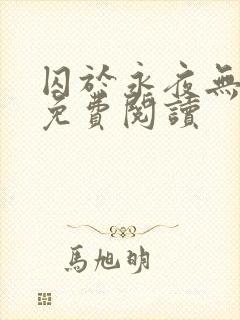 囚於永夜無
免費閱讀
馬旭明